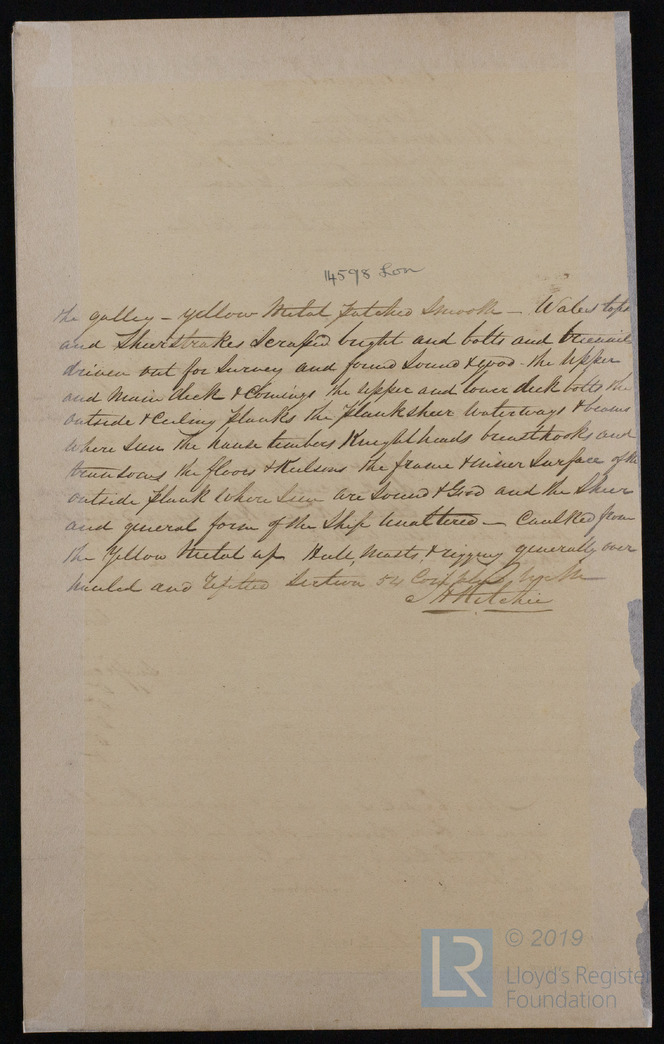 14598 Lon
the galley – Yellow Metal patched Smooth – Wales tops
and Sheerstrakes Scraped bright and bolts and treenails
driven out for Survey and found Sound & good – the Upper
and Main deck & Comings the upper and lower deck bolts the
outside & Ceiling planks the planksheer Waterways & beams
where seen the hause timbers Knightheads breasthooks and
transoms the floors & Kelsons the frame & inner Surface of the
outside plank where seen are Sound & Good and the Sheer
and general form of the Ship unaltered – Caulked from
the Yellow Metal up Hull, Masts, & rigging generally over
hauled and refitted Section 54 Complied with
J H Ritchie
© 2019
LR
Lloyd's Register
Foundation